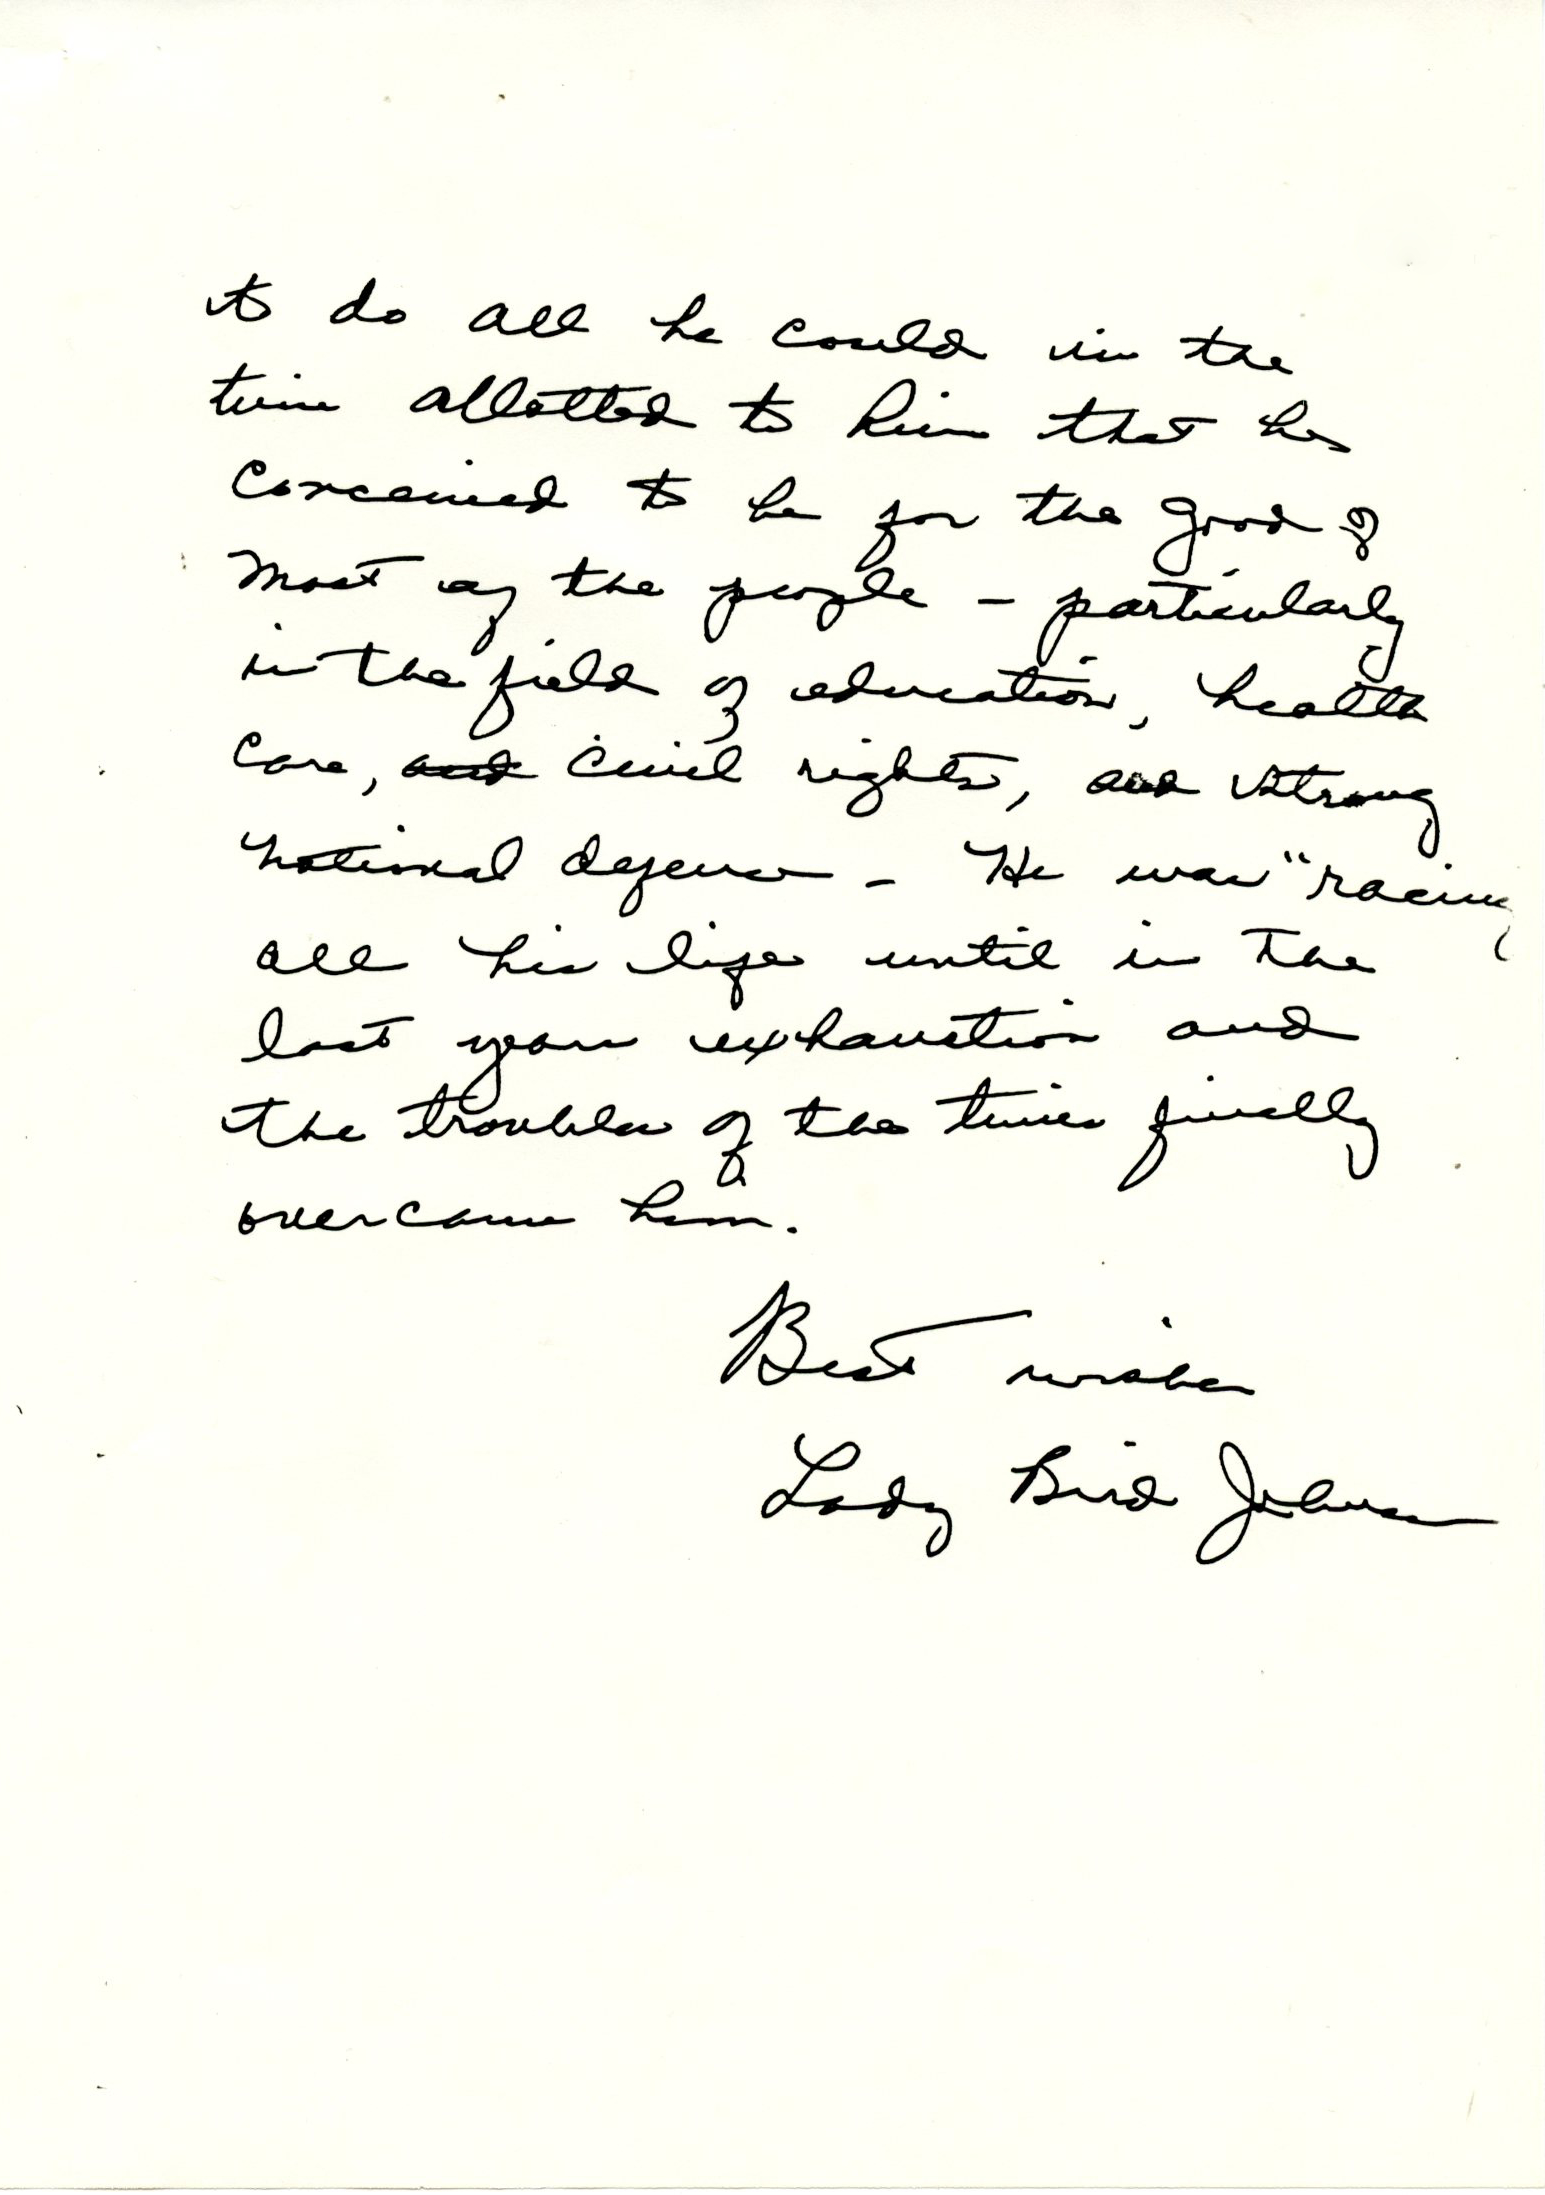 to do all he could in the
time allotted to him that he
conceived to be for the good of
most of the people - particularly
in the field of education, health
care, and civil rights, and strong
national defense - He was "racing
all his life until in the
last years exhaustion and
the troubles of the times finally
overcame him.
Best wishes
Lady Bird Johnson